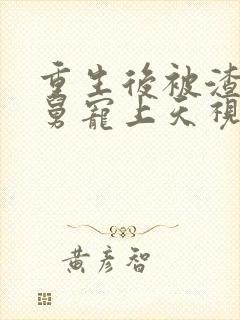 重生後被渣
舅寵上天視
黃彥智